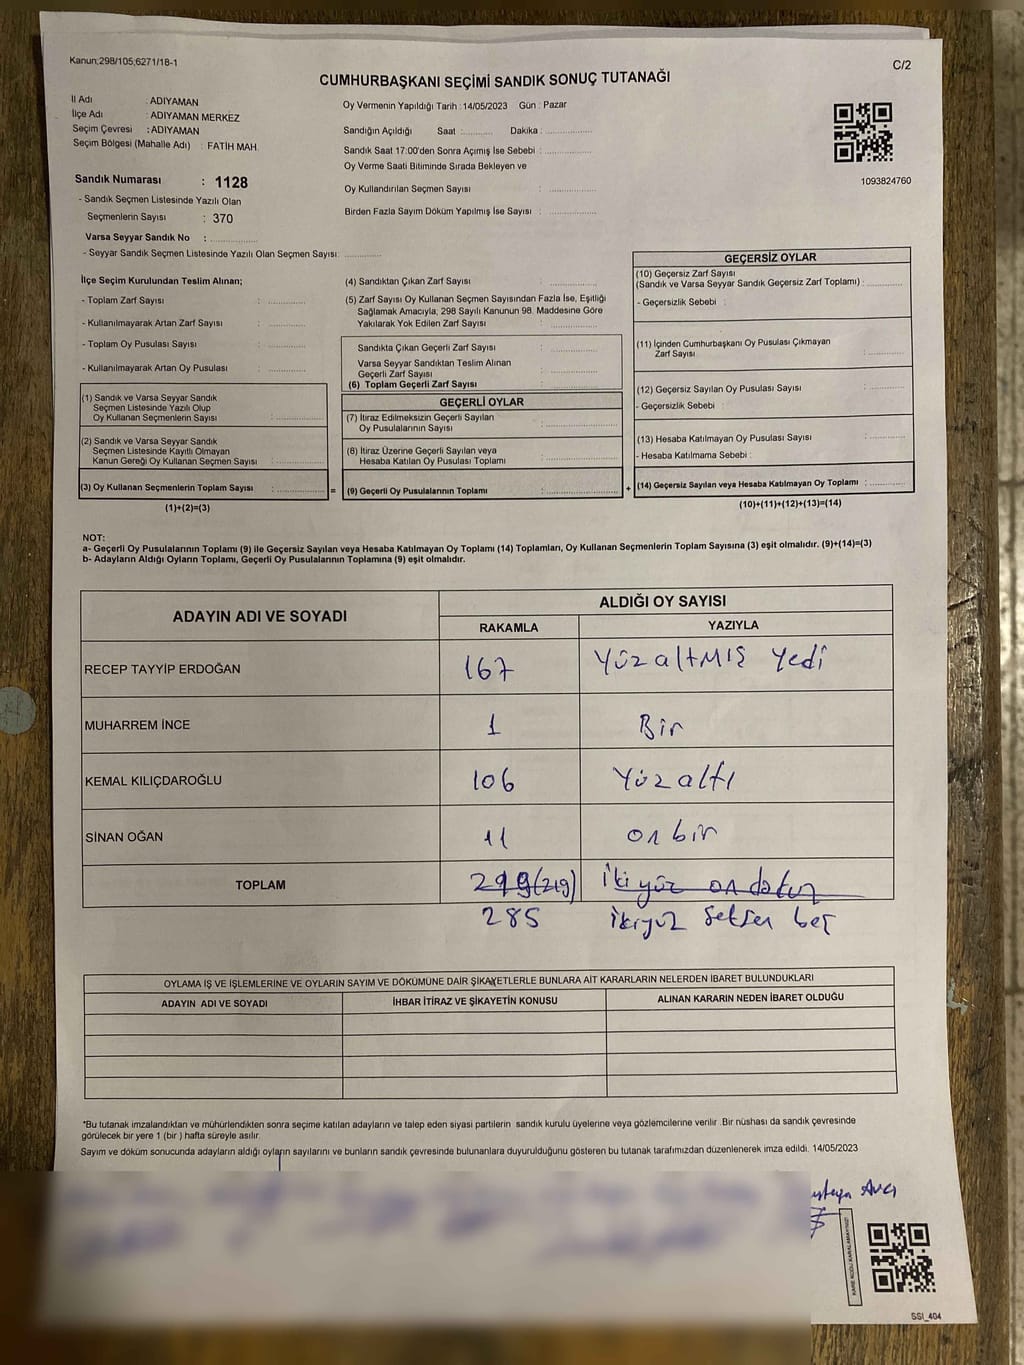 Kanun;298/105;6271/18-1
C/2
CUMHURBAŞKANI SEÇİMİ SANDIK SONUÇ TUTANAĞI
İl Adı : ADIYAMAN
İlçe Adı : ADIYAMAN MERKEZ
Seçim Çevresi : ADIYAMAN
Seçim Bölgesi (Mahalle Adı) : FATİH MAH.
Sandık Numarası : 1128
- Sandık Seçmen Listesinde Yazılı Olan
Seçmenlerin Sayısı : 370
Varsa Seyyar Sandık No : ..............
- Seyyar Sandık Seçmen Listesinde Yazılı Olan Seçmen Sayısı: ............
Oy Vermenin Yapıldığı Tarih : 14/05/2023 Gün : Pazar
Sandığın Açıldığı Saat :........... Dakika : ..............
Sandık Saat 17:00'den Sonra Açımış İse Sebebi : ..............
Oy Verme Saati Bitiminde Sırada Bekleyen ve
Oy Kullandırılan Seçmen Sayısı : ..............
Birden Fazla Sayım Döküm Yapılmış İse Sayısı : ..............
1093824760
İlçe Seçim Kurulundan Teslim Alınan;
- Toplam Zarf Sayısı : ............
- Kullanılmayarak Artan Zarf Sayısı : ............
- Toplam Oy Pusulası Sayısı : ............
- Kullanılmayarak Artan Oy Pusulası : ............
(1) Sandık ve Varsa Seyyar Sandık
Seçmen Listesinde Yazılı Olup
Oy Kullanan Seçmenlerin Sayısı : ..............
(2) Sandık ve Varsa Seyyar Sandık
Seçmen Listesinde Kayıtlı Olmayan
Kanun Gereği Oy Kullanan Seçmen Sayısı : ..............
(3) Oy Kullanan Seçmenlerin Toplam Sayısı : ..............
(1)+(2)=(3)
=
(4) Sandıktan Çıkan Zarf Sayısı : ..............
(5) Zarf Sayısı Oy Kullanan Seçmen Sayısından Fazla İse, Eşitliği
Sağlamak Amacıyla, 298 Sayılı Kanunun 98. Maddesine Göre
Yakılarak Yok Edilen Zarf Sayısı : ..............
Sandıkta Çıkan Geçerli Zarf Sayısı : ..............
Varsa Seyyar Sandıktan Teslim Alınan
Geçerli Zarf Sayısı : ..............
(6) Toplam Geçerli Zarf Sayısı :
GEÇERLİ OYLAR
(7) İtiraz Edilmeksizin Geçerli Sayılan
Oy Pusulalarının Sayısı : ..............
(8) İtiraz Üzerine Geçerli Sayılan veya
Hesaba Katılan Oy Pusulası Toplamı : ..............
(9) Geçerli Oy Pusulalarının Toplamı : ..............
+
GEÇERSİZ OYLAR
(10) Geçersiz Zarf Sayısı
(Sandık ve Varsa Seyyar Sandık Geçersiz Zarf Toplamı) : ............
- Geçersizlik Sebebi :
(11) İçinden Cumhurbaşkanı Oy Pusulası Çıkmayan
Zarf Sayısı : ............
(12) Geçersiz Sayılan Oy Pusulası Sayısı : ............
- Geçersizlik Sebebi :
(13) Hesaba Katılmayan Oy Pusulası Sayısı : ............
- Hesaba Katılmama Sebebi :
(14) Geçersiz Sayılan veya Hesaba Katılmayan Oy Toplamı : ............
(10)+(11)+(12)+(13)=(14)
NOT:
a- Geçerli Oy Pusulalarının Toplamı (9) ile Geçersiz Sayılan veya Hesaba Katılmayan Oy Toplamı (14) Toplamları, Oy Kullanan Seçmenlerin Toplam Sayısına (3) eşit olmalıdır. (9)+(14)=(3)
b- Adayların Aldığı Oyların Toplamı, Geçerli Oy Pusulalarının Toplamına (9) eşit olmalıdır.
ADAYIN ADI VE SOYADI ALDIĞI OY SAYISI
RAKAMLA YAZIYLA
RECEP TAYYİP ERDOĞAN 167 Yüzaltmış yedi
MUHARREM İNCE 1 Bir
KEMAL KILIÇDAROĞLU 106 Yüzaltı
SİNAN OĞAN 11 on bir
TOPLAM 219(219) İkiyüz on dokuz
285 İkiyüz seksen beş
OYLAMA İŞ VE İŞLEMLERİNE VE OYLARIN SAYIM VE DÖKÜMÜNE DAİR ŞİKAYETLERLE BUNLARA AİT KARARLARIN NELERDEN İBARET BULUNDUKLARI
ADAYIN ADI VE SOYADI İHBAR İTİRAZ VE ŞİKAYETİN KONUSU ALINAN KARARIN NEDEN İBARET OLDUĞU
*Bu tutanak imzalandıktan ve mühürlendikten sonra seçime katılan adayların ve talep eden siyasi partilerin sandık kurulu üyelerine veya gözlemcilerine verilir .Bir nüshası da sandık çevresinde
görülecek bir yere 1 (bir ) hafta süreyle asılır.
Sayım ve döküm sonucunda adayların aldığı oyların sayılarını ve bunların sandık çevresinde bulunanlara duyurulduğunu gösteren bu tutanak tarafımızdan düzenlenerek imza edildi. 14/05/2023
Avcı
SSI_404